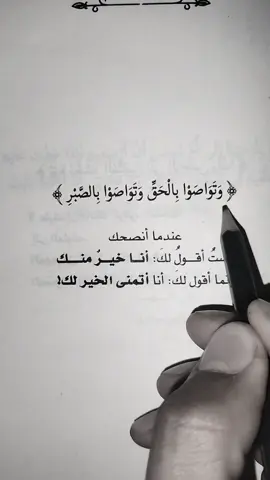 ﴿ وَتَوَاصَوْا بِالْحَقِّ وَتَوَاصَوْا بِالصَّبْرِ ﴾
عندما أنصحك
أقـولُ لكَ: أنـا خيـرٌ منــك
أقول لكَ: أنا أتمنى الخير لك!